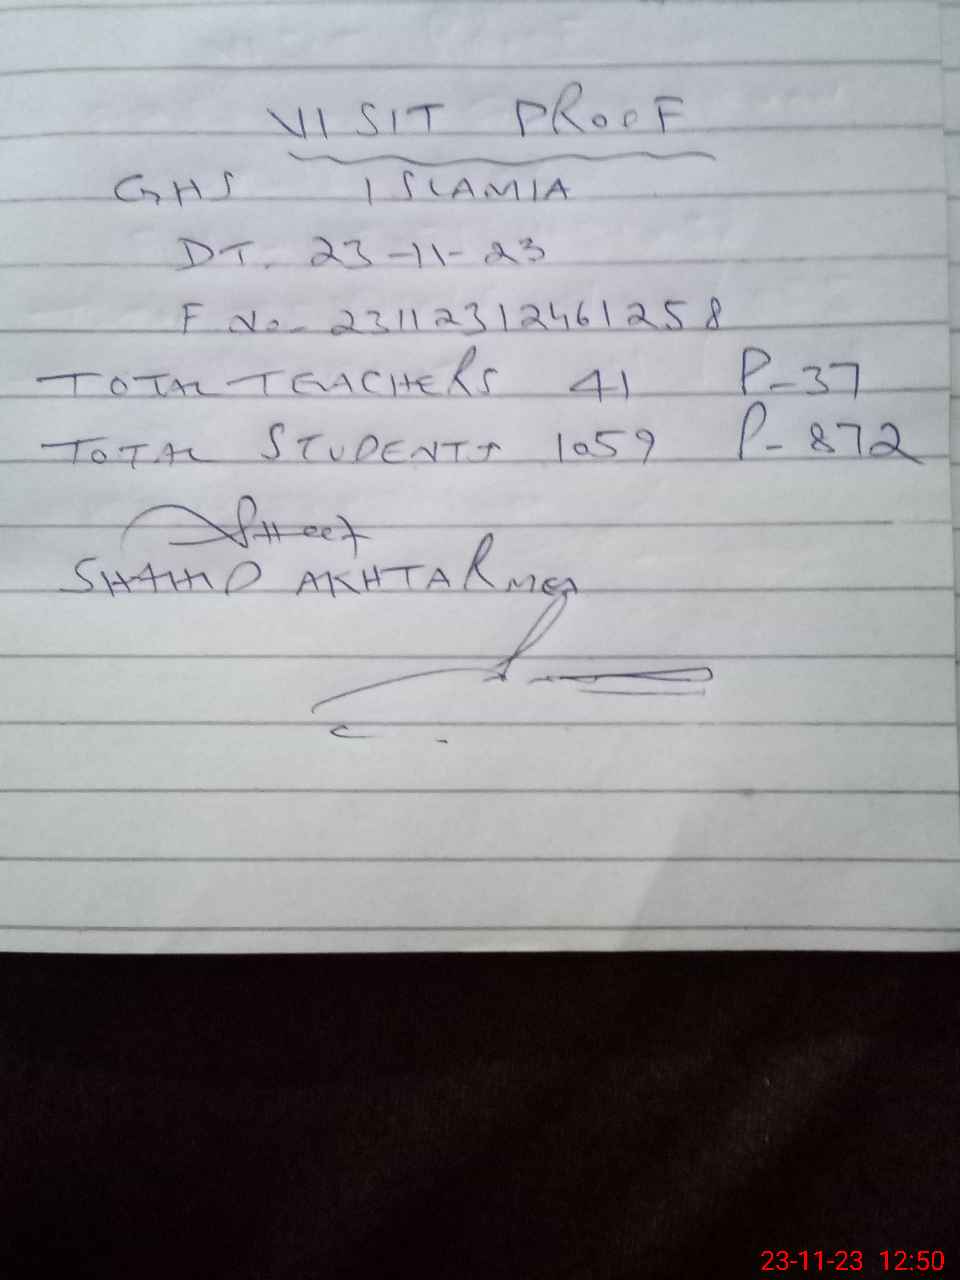 VISIT PROOF
GHS ISLAMIA
DT. 23-11-23
F No- 23112312461258
TOTAL TEACHERS 41 P-37
TOTAL STUDENTS 1059 P-872
SHAHID AKHTAR MEA
23-11-23 12:50